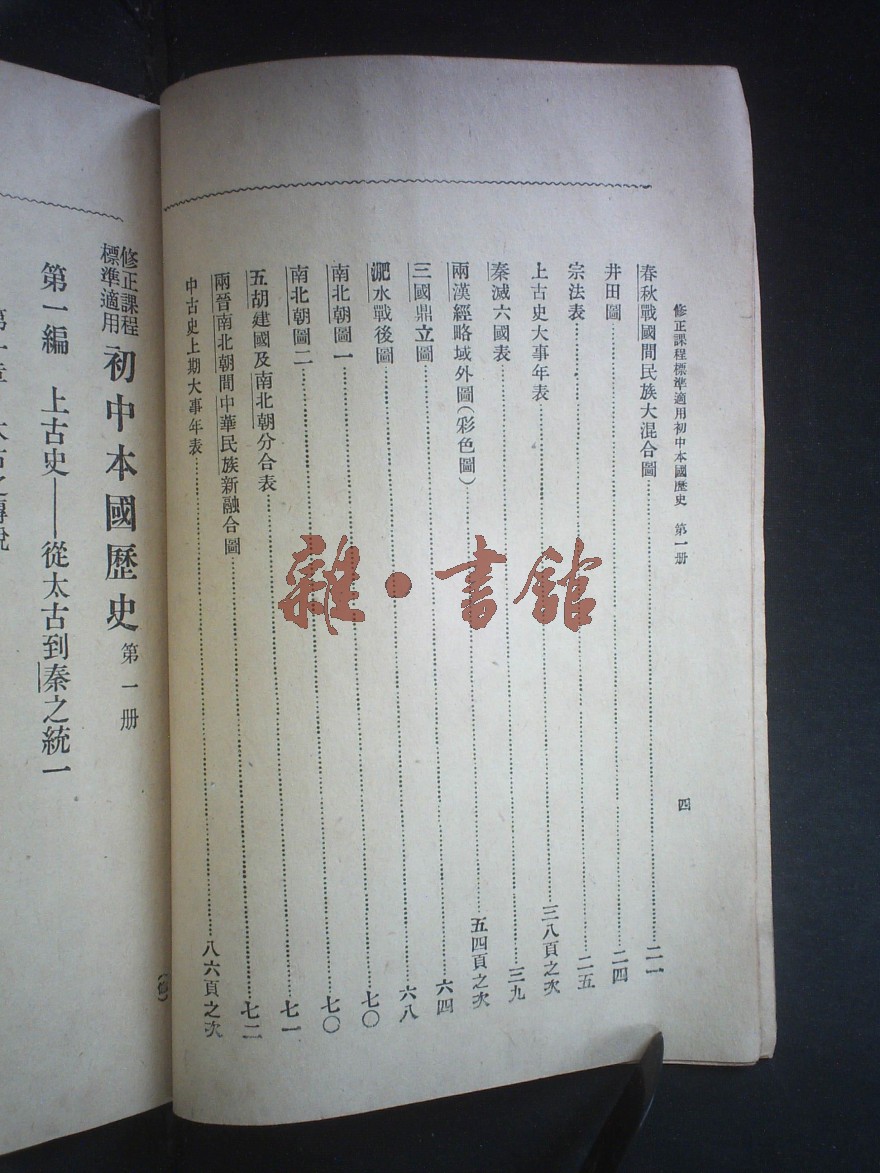 修正課程標準適用初中本國歷史 第一册
四
春秋戰國間民族大混合圖……二一
井田圖……二四
宗法表……二五
上古史大事年表……三八頁之次
秦滅六國表……三九
兩漢經略域外圖(彩色圖)……五四頁之次
三國鼎立圖……六四
淝水戰後圖……六八
南北朝圖一……七〇
南北朝圖二……七〇
五胡建國及南北朝分合表……七一
兩晉南北朝間中華民族新融合圖……七二
中古史上期大事年表……八六頁之次
修正課程標準適用 初中本國歷史 第一册
第一編 上古史——從太古到秦之統一
雜·書館